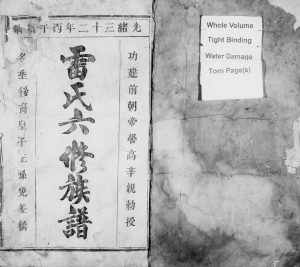 光緒三十二年丙午
功建前朝帝嚳高辛親勅授
雷氏六修族譜
名垂後裔皇子王孫免差徭
Whole Volume
Tight Binding
Water Damage
Torn Page(s)